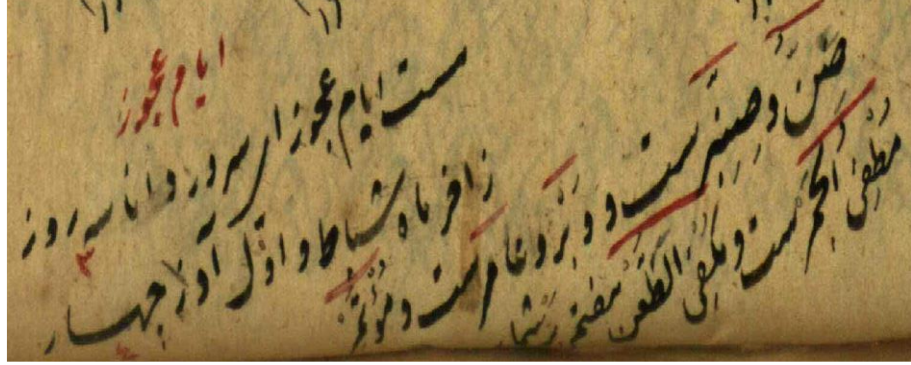 ایام عجوز
هست ایام عجوز ای سرور دانا سه روز
۳
زآخر ماه شباط و اوّل آذر چهار
۴
صِنّ وَ صِنَّبرست و وَبَر و نامرست و مُؤتمر
مُطفی الجمرست و مکفی الظعن هفتم برشمار